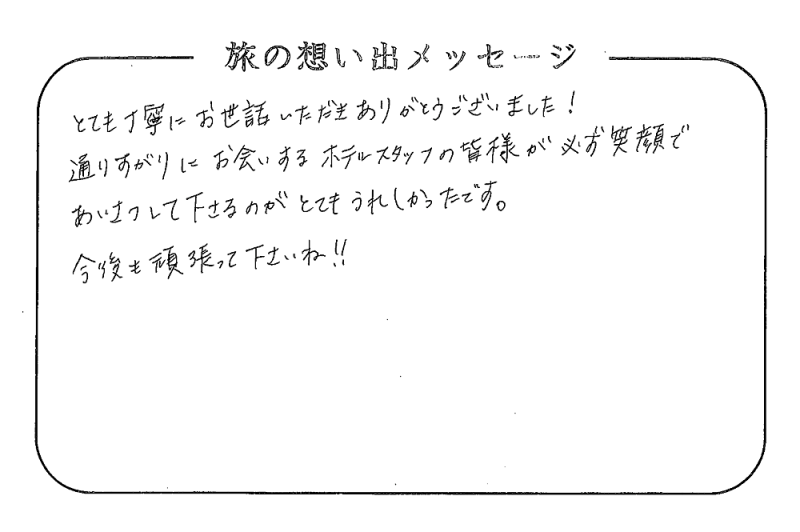 旅の想い出メッセージ
とても丁寧にお世話いただきありがとうございました！
通りすがりにお会いするホテルスタッフの皆様が必ず笑顔で
あいさつして下さるのがとてもうれしかったです。
今後も頑張って下さいね!!